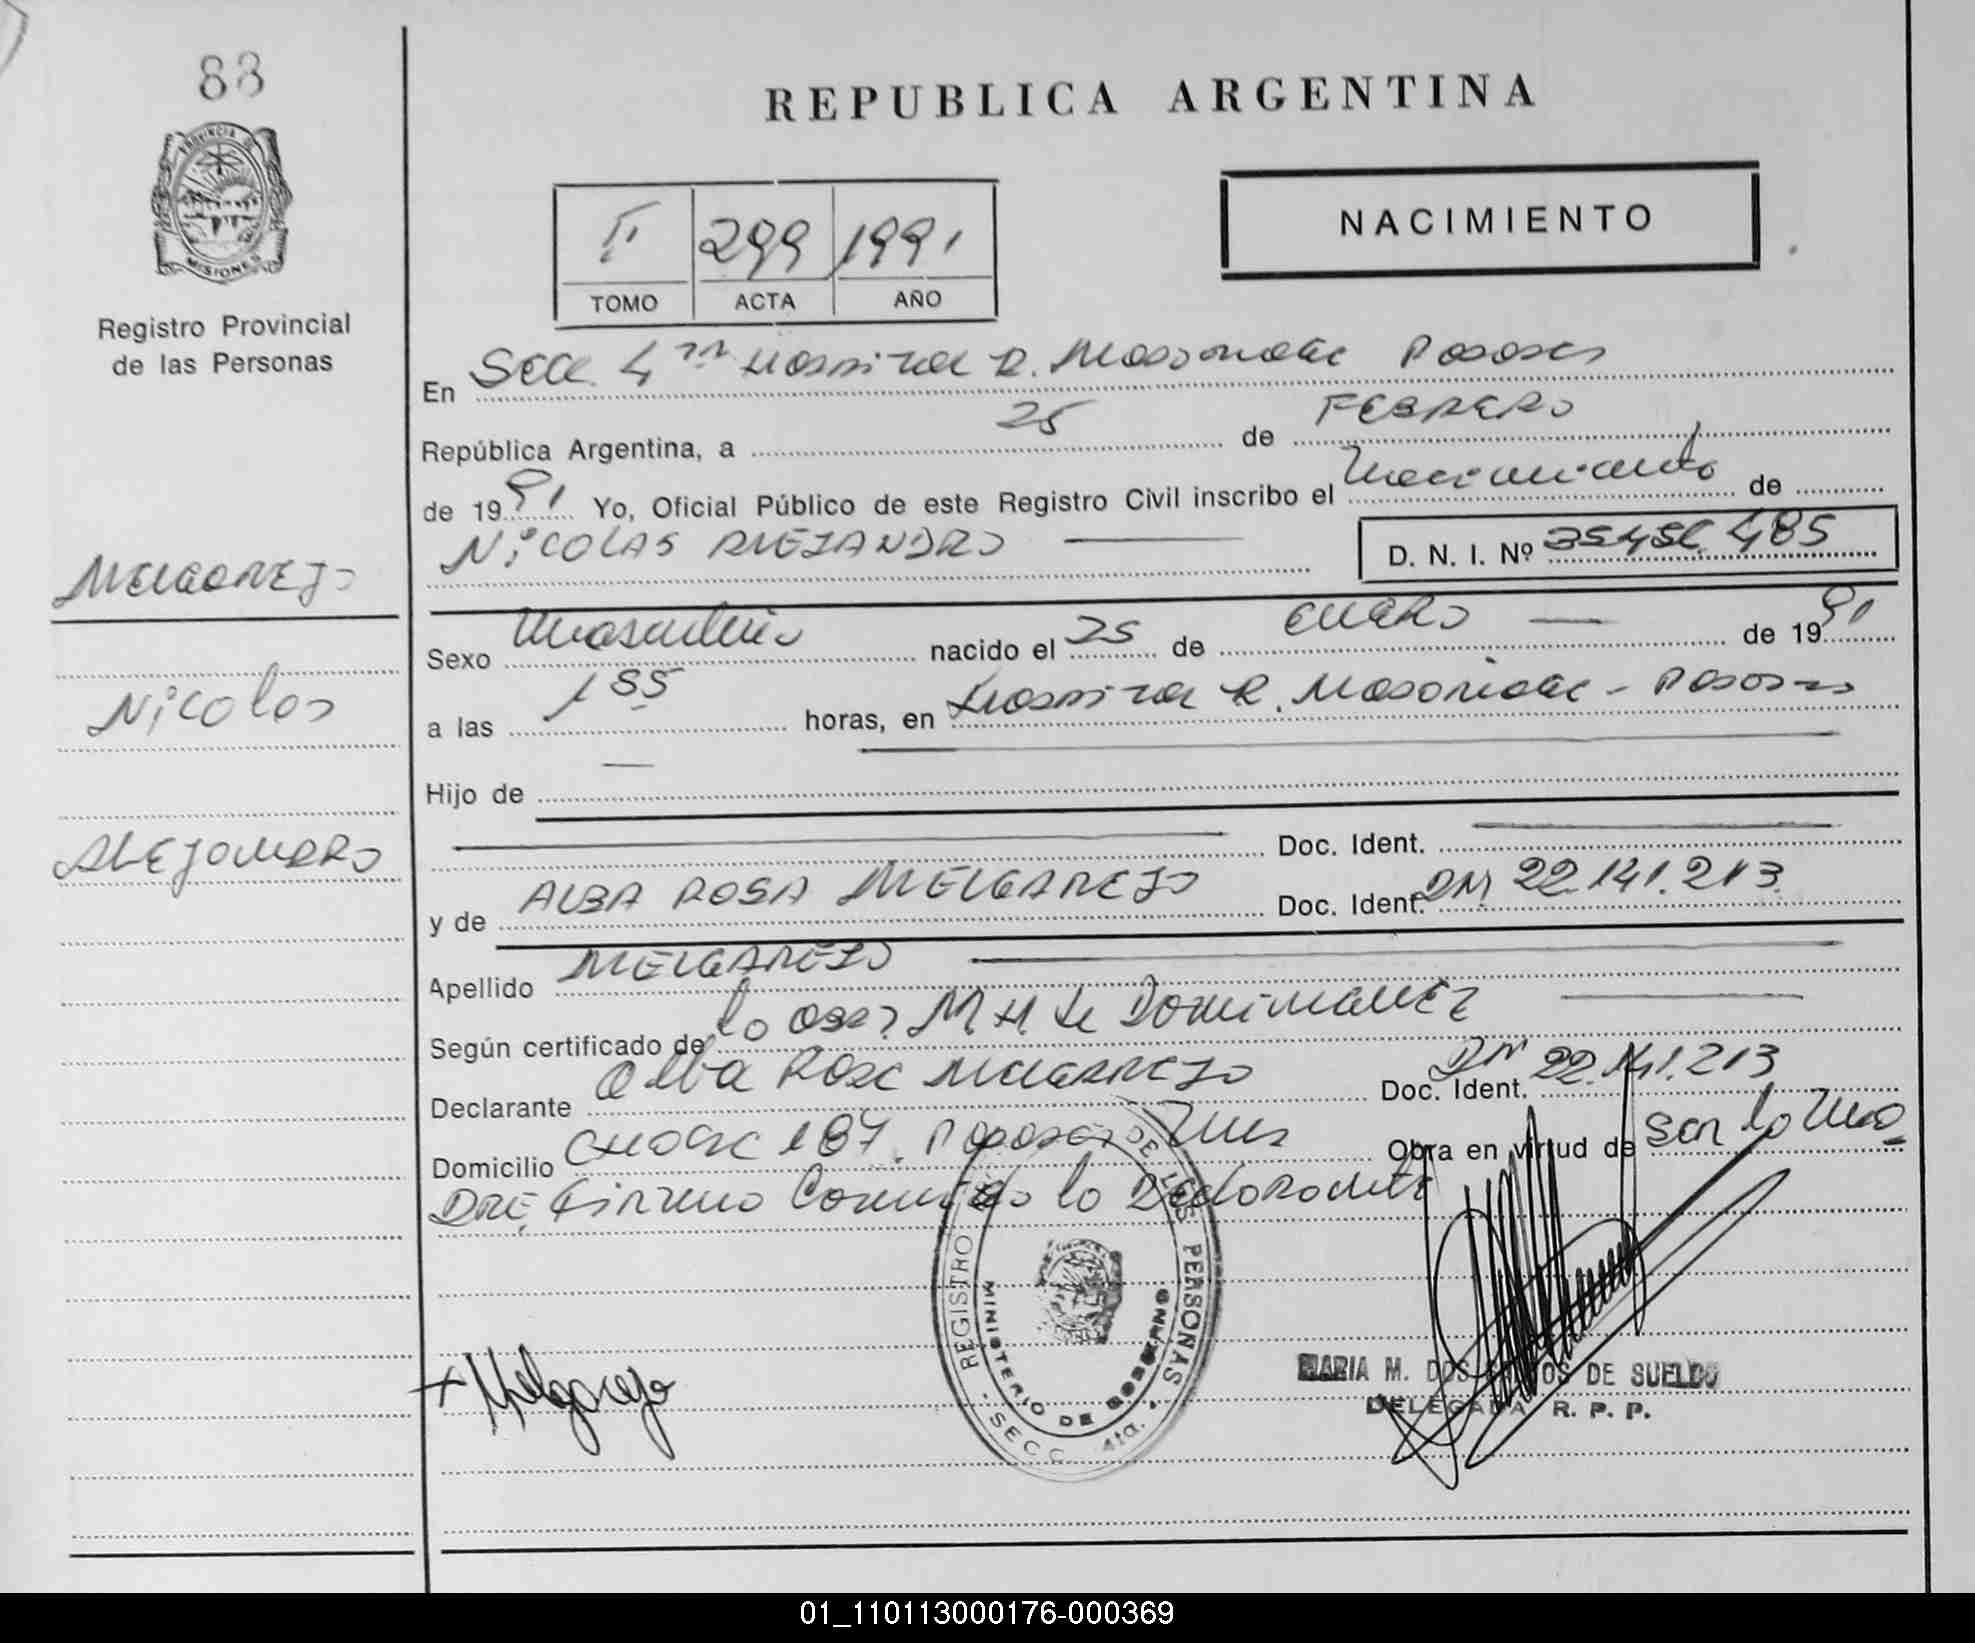 88
REPUBLICA ARGENTINA
PROVINCIA DE MISIONES
Registro Provincial
de las Personas
II 299 1991
TOMO ACTA AÑO
NACIMIENTO
En Secc. 4ta Hospital R. Madariaga Posadas
República Argentina, a 25 de FEBRERO
de 1991 Yo, Oficial Público de este Registro Civil inscribo el nacimiento de
NICOLAS ALEJANDRO
D. N. I. Nº 485
MELGAREJO
Nicolas
ALEJANDRO
Sexo masculino nacido el 25 de ENERO de 1991
a las 1 55 horas, en Hospital R. Madariaga - Posadas
Hijo de
Doc. Ident.
y de ALBA ROSA MELGAREJO Doc. Ident. DNI 22.141.213
Apellido MELGAREJO
Según certificado de la M. H. de
Declarante Alba Rosa MELGAREJO Doc. Ident. DNI 22.141.213
Domicilio 187. Posadas Mnes Obra en virtud de ser la Ma
DRE. Firmando la Declarante
Melgarejo
REGISTRO DE LAS PERSONAS
MINISTERIO DE GOBIERNO
SECC. 4ta.
MARIA M. DOS SANTOS DE SUELDO
DELEGADA R. P. P.
01_110113000176-000369